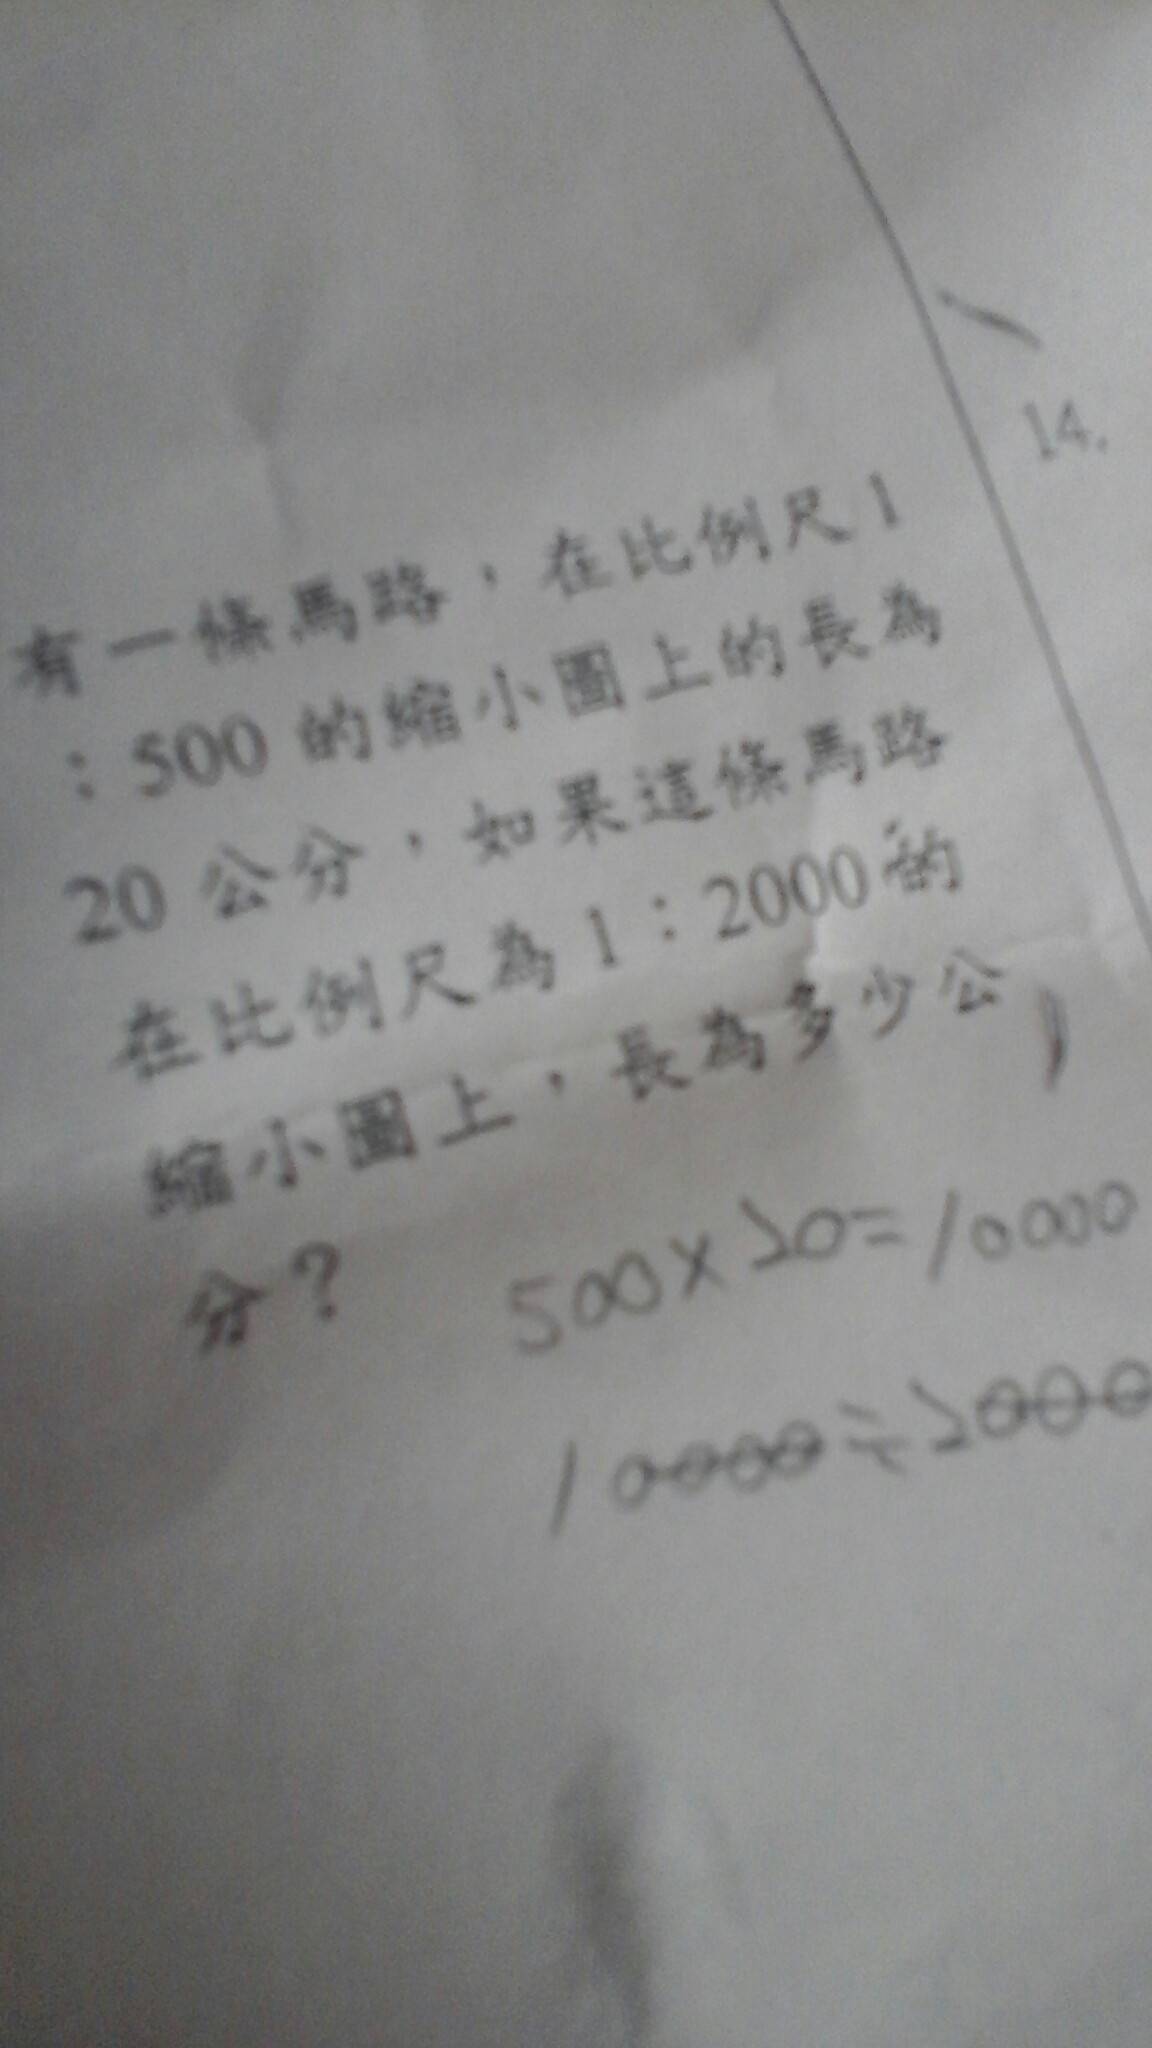 14.
有一條馬路,在比例尺1
:500 的縮小圖上的長為
20 公分,如果這條馬路
在比例尺為1:2000的
縮小圖上,長為多少公
分?
500×20=10000
10000÷2000